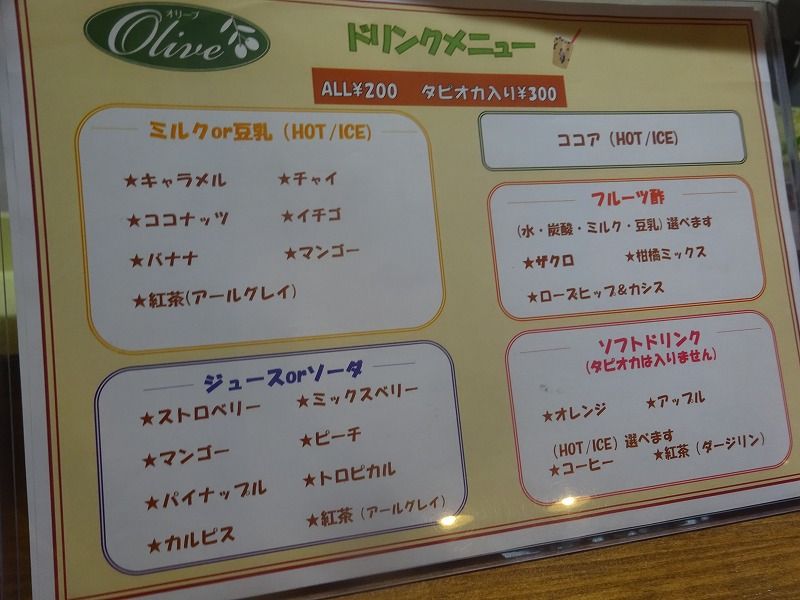 オリーブ
Olive
ドリンクメニュー
ALL¥200 タピオカ入り¥300
ミルクor豆乳 (HOT/ICE)
★キャラメル ★チャイ
★ココナッツ ★イチゴ
★バナナ ★マンゴー
★紅茶(アールグレイ)
ジュースorソーダ
★ストロベリー ★ミックスベリー
★マンゴー ★ピーチ
★パイナップル ★トロピカル
★カルピス ★紅茶(アールグレイ)
ココア (HOT/ICE)
フルーツ酢
(水・炭酸・ミルク・豆乳)選べます
★ザクロ ★柑橘ミックス
★ローズヒップ&カシス
ソフトドリンク
(タピオカは入りません)
★オレンジ ★アップル
(HOT/ICE) 選べます
★コーヒー ★紅茶(ダージリン)